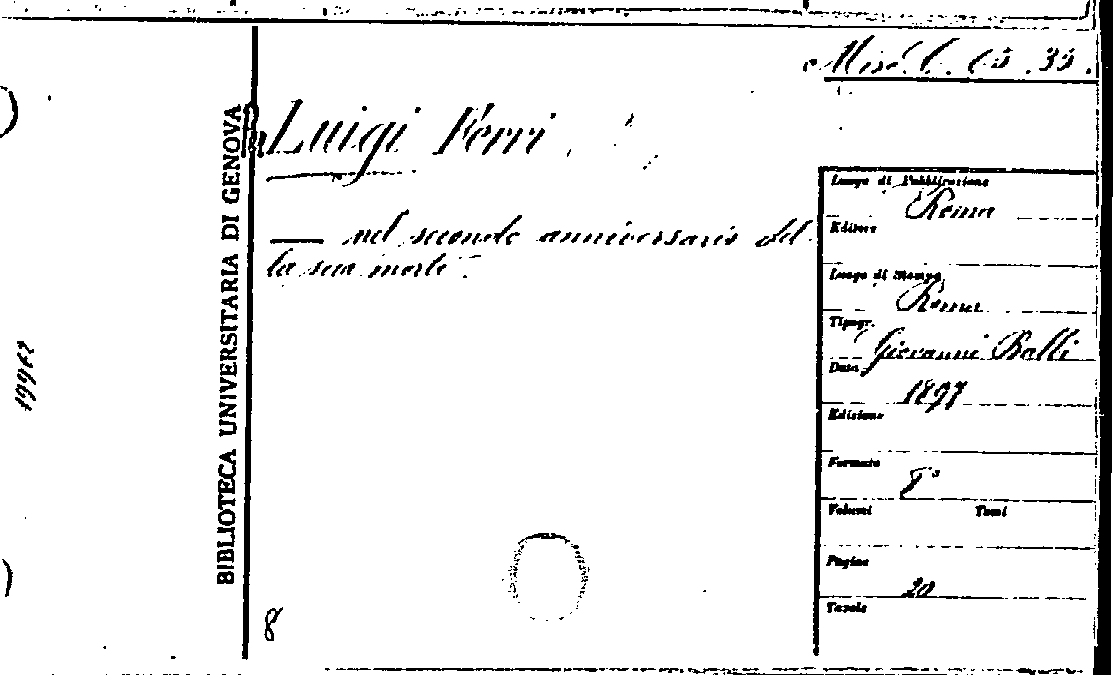 Misc. C. 15. 35.
BIBLIOTECA UNIVERSITARIA DI GENOVA
Luigi Ferri
— nel secondo anniversario del
la sua morte.
Luogo di Pubblicazione
Roma
Editore
Luogo di Stampa
Roma
Tipogr.
Giovanni Balbi
Data
1897
Edizione
Formato
8°
Volumi Tomi
Pagine
20
Tavole
8